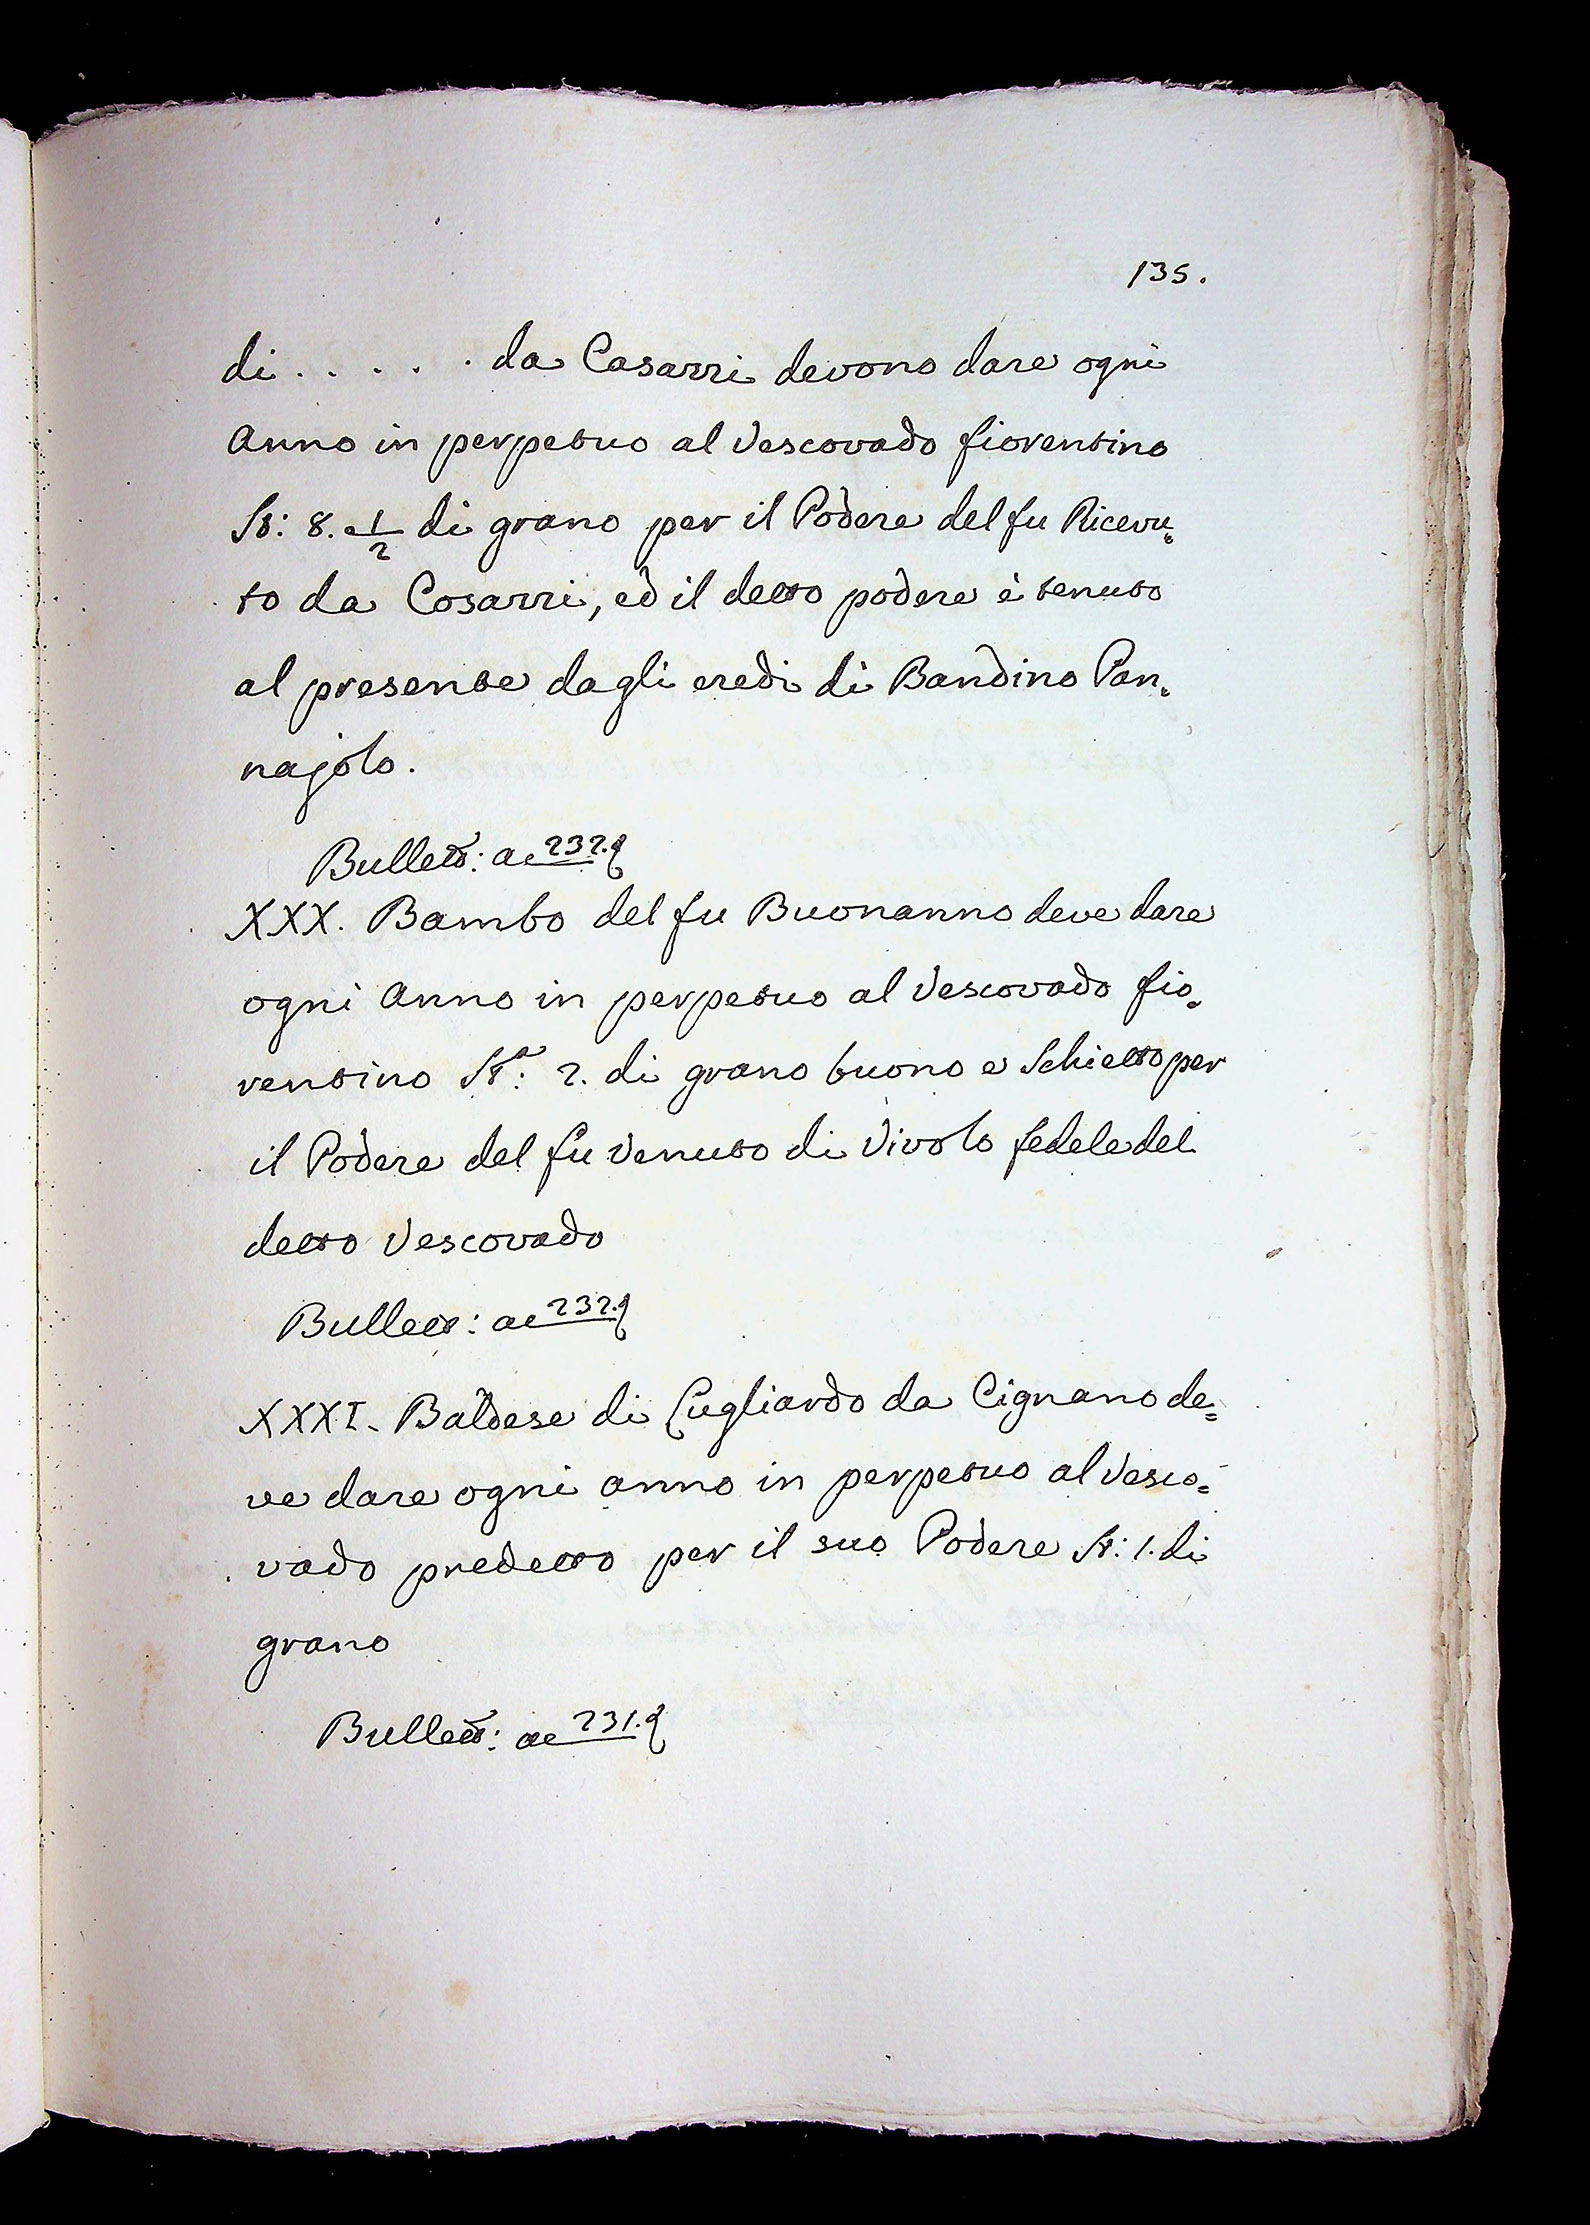 135.
di . . . . . . da Casarri devono dare ogni
Anno in perpetuo al Vescovado fiorentino
St: 8. e 1/2 di grano per il Podere del fu Ricevu=
to da Cosarri, ed il detto podere è tenuto
al presente dagli eredi di Bandino Pan=
najolo.
Bullett: a c 232.
XXX. Bambo del fu Buonanno deve dare
ogni Anno in perpetuo al Vescovado fio=
rentino St.a: 2. di grano buono e Schietto per
il Podere del fu Venuto di Vivolo fedele del
detto Vescovado
Bullett: a c 232.
XXXI. Baldese di Cugliardo da Cignano de=
ve dare ogni anno in perpetuo al Vesco=
vado predetto per il suo Podere St: 1. di
grano
Bullett: a c 231.